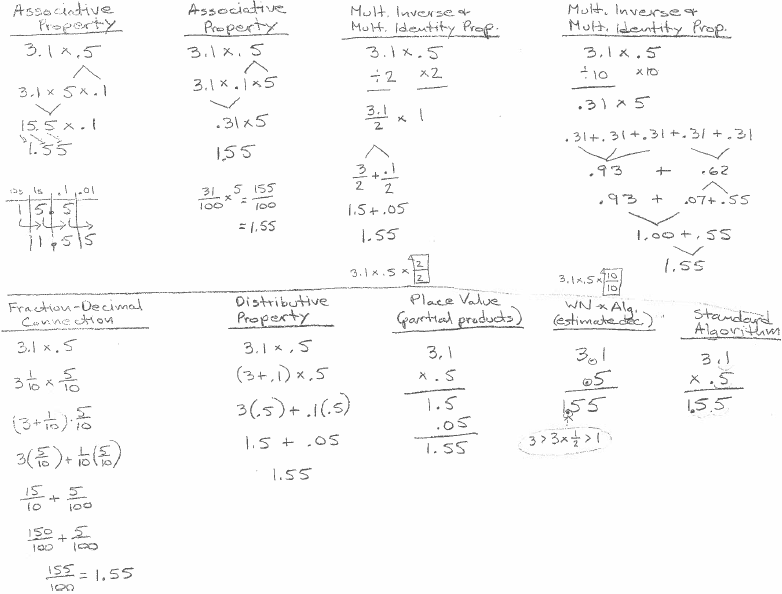 Associative
Property
3.1 × .5
3.1 × 5 × .1
15.5 × .1
1.55
10s 1s .1 .01
1 5 . 5
1 1 . 5 5
Associative
Property
3.1 × .5
3.1 × .1 × 5
.31 × 5
1.55
31/100 × 5 = 155/100
= 1.55
Mult. Inverse &
Mult. Identity Prop.
3.1 × .5
÷2 ×2
3.1/2 × 1
3/2 + .1/2
1.5 + .05
1.55
3.1 × .5 × 2/2
Mult. Inverse &
Mult. Identity Prop.
3.1 × .5
÷10 ×10
.31 × 5
.31 + .31 + .31 + .31 + .31
.93 + .62
.93 + .07 + .55
1.00 + .55
1.55
3.1 × .5 × 10/10
Fraction-Decimal
Connection
3.1 × .5
3 1/10 × 5/10
(3 + 1/10) · 5/10
3(5/10) + 1/10(5/10)
15/10 + 5/100
150/100 + 5/100
155/100 = 1.55
Distributive
Property
3.1 × .5
(3 + .1) × .5
3(.5) + .1(.5)
1.5 + .05
1.55
Place Value
(partial products)
3.1
× .5
1.5
.05
1.55
WN × Alg.
(estimate dec.)
3.1
.5
1.55
3 > 3 × 1/2 > 1
Standard
Algorithm
3.1
× .5
1.55